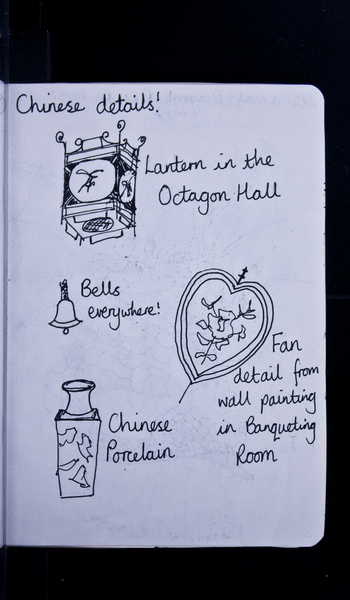 Chinese details!
Lantern in the
Octagon Hall
Bells
everywhere!
Fan
detail from
wall painting
in Banqueting
Room
Chinese
Porcelain